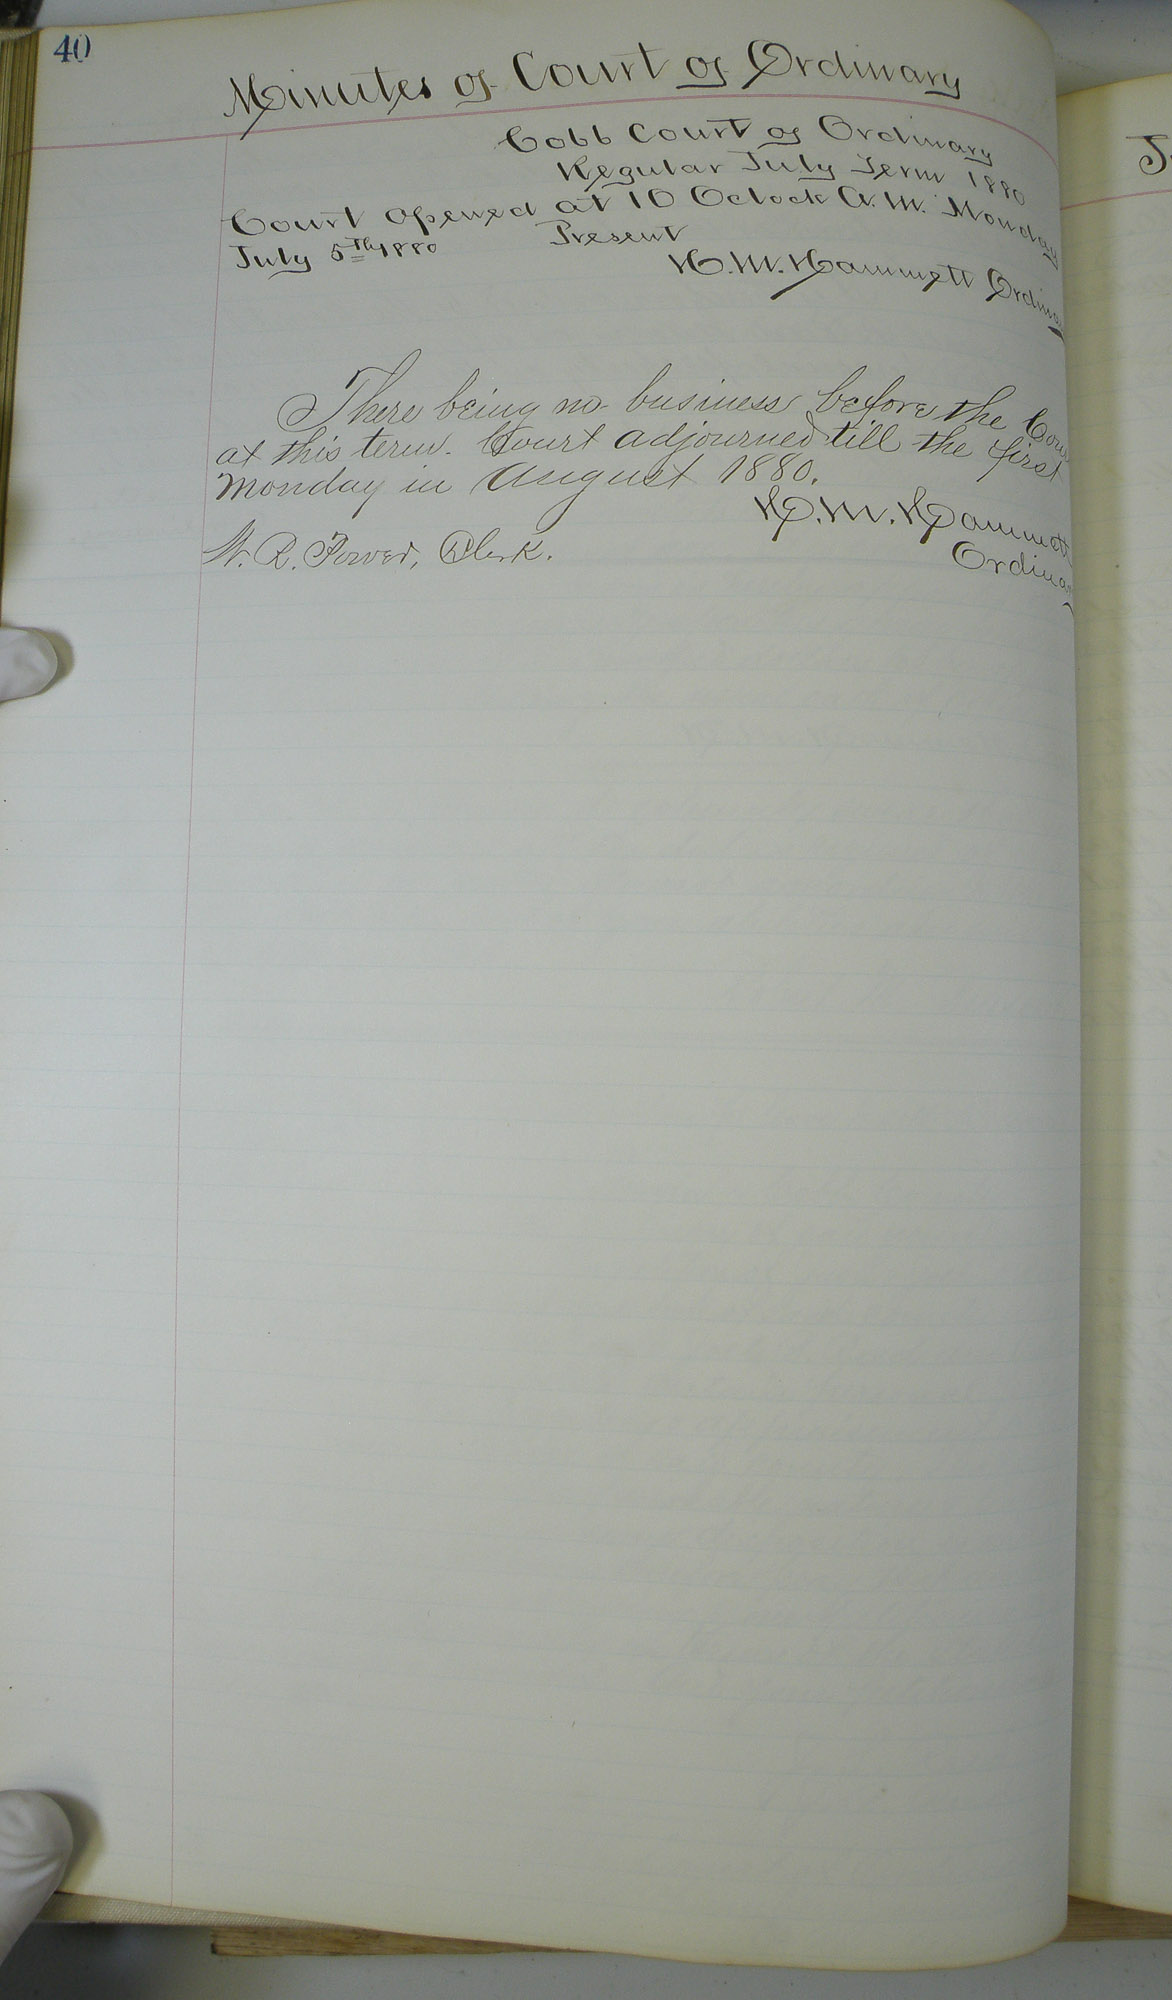 40
Minutes of Court of Ordinary
Cobb Court of Ordinary
Regular July Term 1880
Court opened at 10 Oclock A.M. Monday
July 5th 1880 Present
H.M. Hammett Ordinary
There being no business before the Cour
at this term. Court adjourned till the first
Monday in August 1880.
H.M. Hammett
Ordinary
W. R. Power, Clerk.